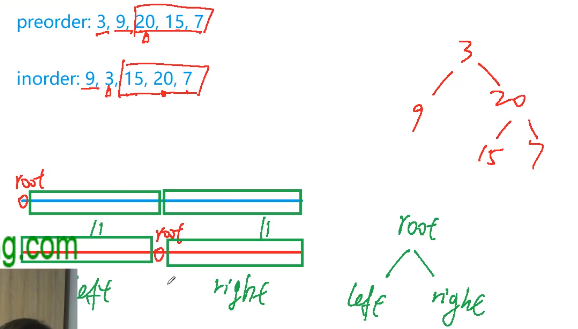 preorder: 3, 9, 20, 15, 7
inorder: 9, 3, 15, 20, 7
3
9 20
15 7
root
root
g.com
left right
root
left right